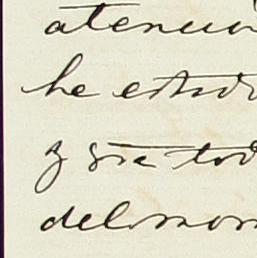 atencio
he estud
y sre tod
del mom